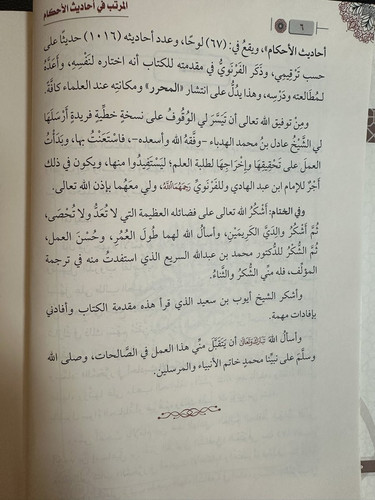 المرتب في أحاديث الأحكام
٦
أحاديث الأحكام»، ويقعُ في: (٦٧) لوحًا، وعدد أحاديثه (١٠١٦) حديثًا على
حسب تَرْقِيمِي، وذَكَر الفَرْنَوِيُّ في مقدمتِه للكتاب أنه اختاره لنَفْسِهِ، وأَعَدَّهُ
لمُطالعته ودَرْسِه، وهذا يدُلُّ على انتشار «المحرر» ومكانتِه عند العلماء كافَّةً.
ومِنْ توفيق الله تعالى أن يَسَّرَ لي الوُقُوفُ على نسخةٍ خطِّيةٍ فريدةٍ أَرْسَلَهَا
لي الشَّيْخُ عادل بنُ محمد الهدباء -وفَّقهُ الله وأسعده-، فاسْتَعَنْتُ بها، وبَدَأْتُ
العملَ على تَحْقِيقِهَا وإِخْرَاجِهَا لطلبة العلم؛ ليَسْتَفِيدُوا منها، ويكون في ذلك
أَجْرٌ للإمام ابن عبد الهادي وللفَرْنَوِيِّ رَحِمَهُمَااللَّهُ، ولي معَهُما بإذن الله تعالى.
وفي الختام: أَشْكُرُ الله تعالى على فضائله العظيمة التي لا تُعَدُّ ولا تُحْصَى،
ثُمَّ أَشْكُرُ والِدَيَّ الكَرِيمَيْنِ، وأسألُ الله لهما طُولَ العُمُرِ، وحُسْنَ العمل،
ثُمَّ الشُّكْرُ للدُّكتور محمد بن عبدالله السريع الذي استفدتُ منه في ترجمة
المؤلِّف، فله منِّي الشُّكْرُ والثَّنَاءُ.
وأشكر الشيخ أيوب بن سعيد الذي قرأ هذه مقدمة الكتاب وأفادني
بإفادات مهمة.
وأسألُ اللهَ تَبَارَكَوَتَعَالَى أن يَتَقَبَّلَ منِّي هذا العمل في الصَّالحات، وصلى الله
وسلَّمَ على نبيِّنا محمدٍ خاتم الأنبياء والمرسلين.